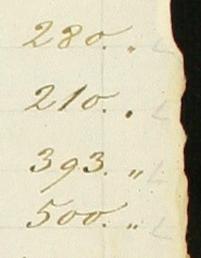 280. „
210. „
393. „
500. „